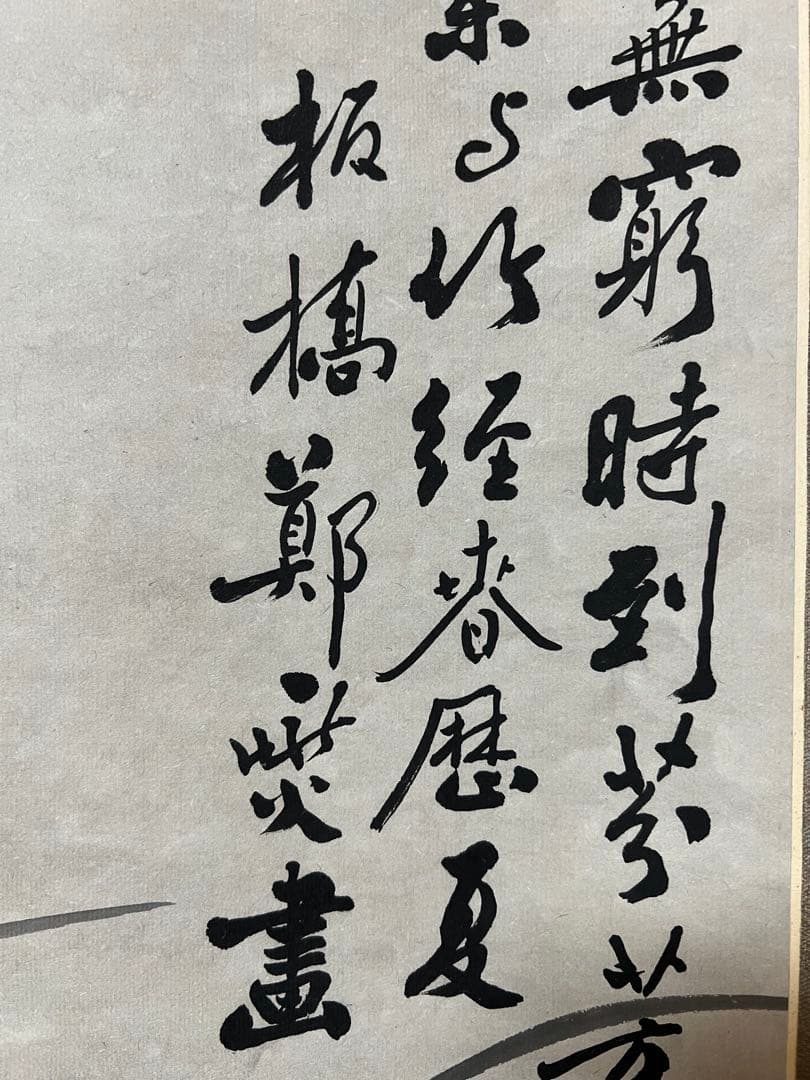 無窮時到芬芳
与竹經春歷夏
板橋鄭燮畫